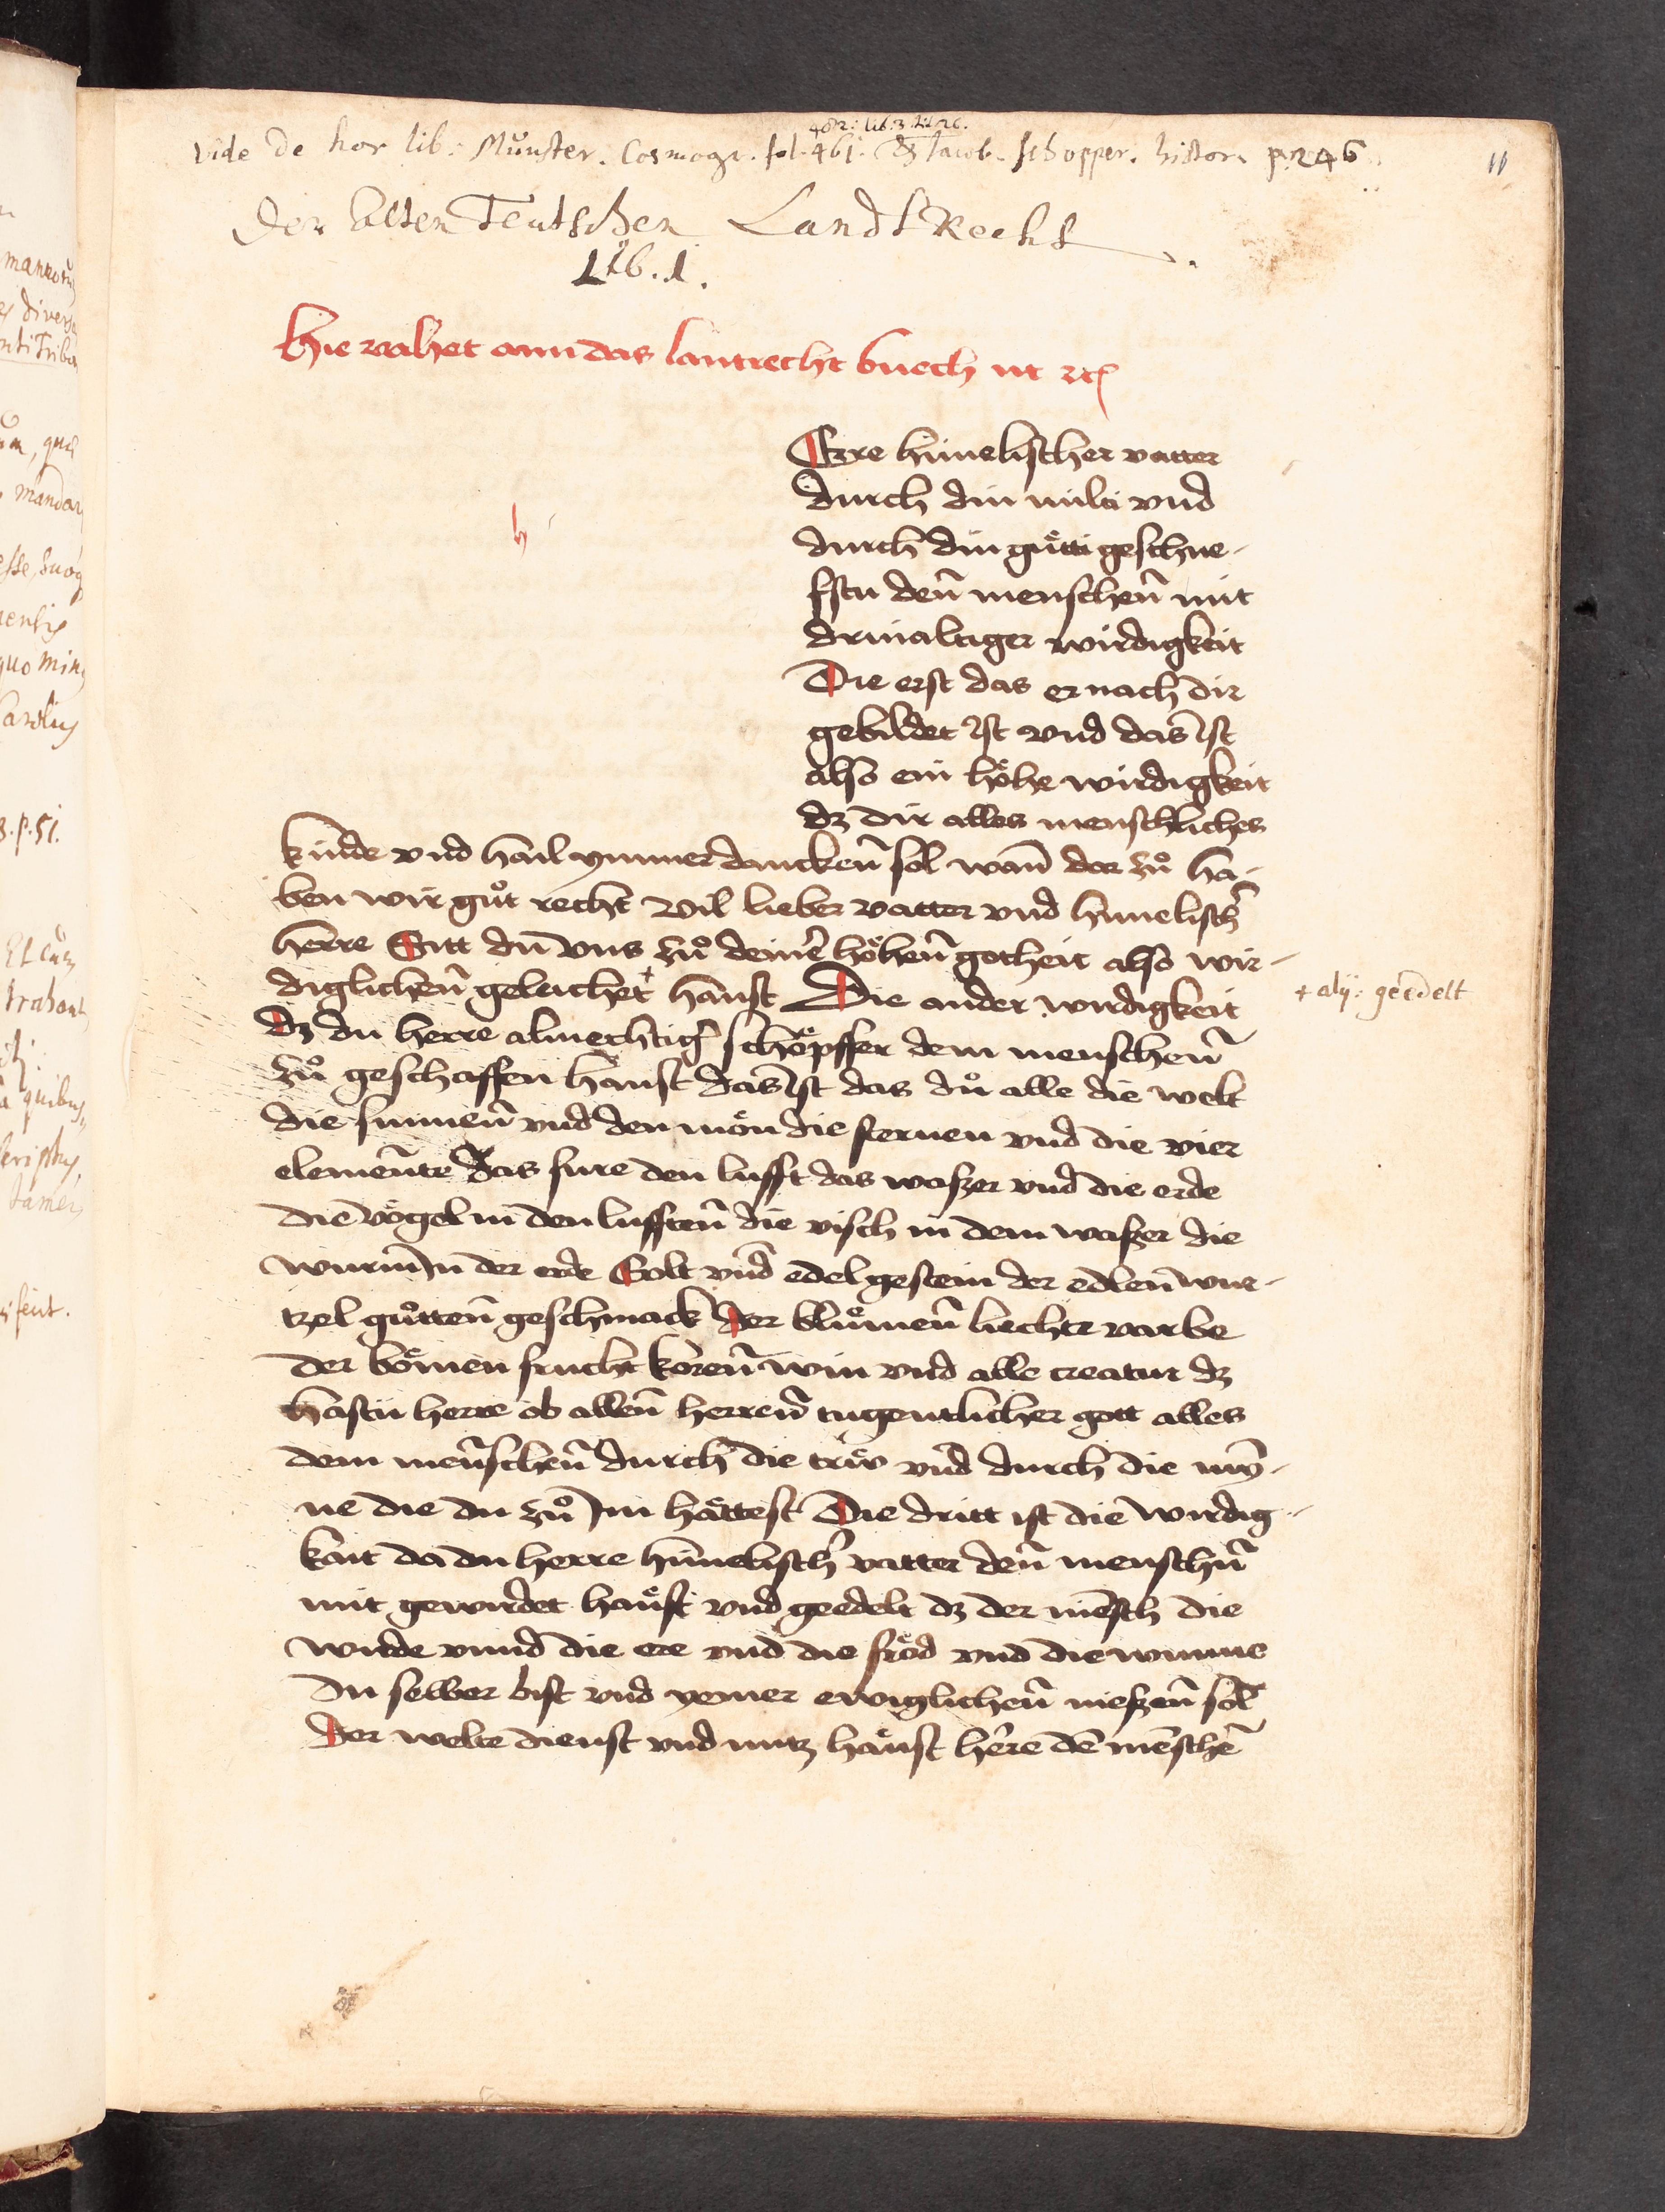 vide de hoc lib: Munster. Cosmogr. fol. 461. & Jacob. Schopper. histor. p. 246
11
Der Alten Teutschen LandtRecht
Lib. 1.
Hie vahet ann das lantrecht buech
Erre himelischer vatter
durch din milti vnd
durch din gütti geschue-
fstu den̄ menschen̄ mit
drinaltiger wirdigkeit
Die erst das er nach dir
gebildet ist vnd das ist
also ein höhe wirdigkeit
dz dir alles menschliches
kunde vnd hail ymmer dancken̄ sol wan̄ dar zů ha-
ben wir gůt recht vil lieber vatter vnd himelisch̄
herre Sitt du vns zů deinē höhen̄ gotheit also wir-
diglichen̄ gelichet + haust Die ander wirdigkeit
+ alÿ: geedelt
dz du herre almechtiḡ schöpffer dem menschen̄
zů geschaffen haust das ist das dů alle die welt
die sunnen̄ vnd den mön die sternen vnd die vier
elemen̄te das fure den lufft das waszer vnd die erde
die vögel in den lufften̄ die visch in dem waszer die
wurm in der erde Golt vnd edel gestein der edlen̄ wur-
tzel gůtten̄ geschmack der blůmen̄ liechte varbe
der bömen frucht koren̄ win vnd alle creatur dz
hastu herre ob allen̄ herren̄ tugentlicher gott alles
dem men̄schen̄ durch die trüw vnd durch die mȳ-
ne die du zů Im hättest Die dritt ist die wirdig-
kait da du herre himelisch̄ vatter den̄ menschn̄
mit gewirdet häust vnd geedelt dz der mēsch die
wirde vnnd die ere vnd die fröd vnd die wunne
du selber bist vnd yemer ewiglichen̄ nieszen̄ sol
Der welte dienst vnd nutz häust herre dē mēschē